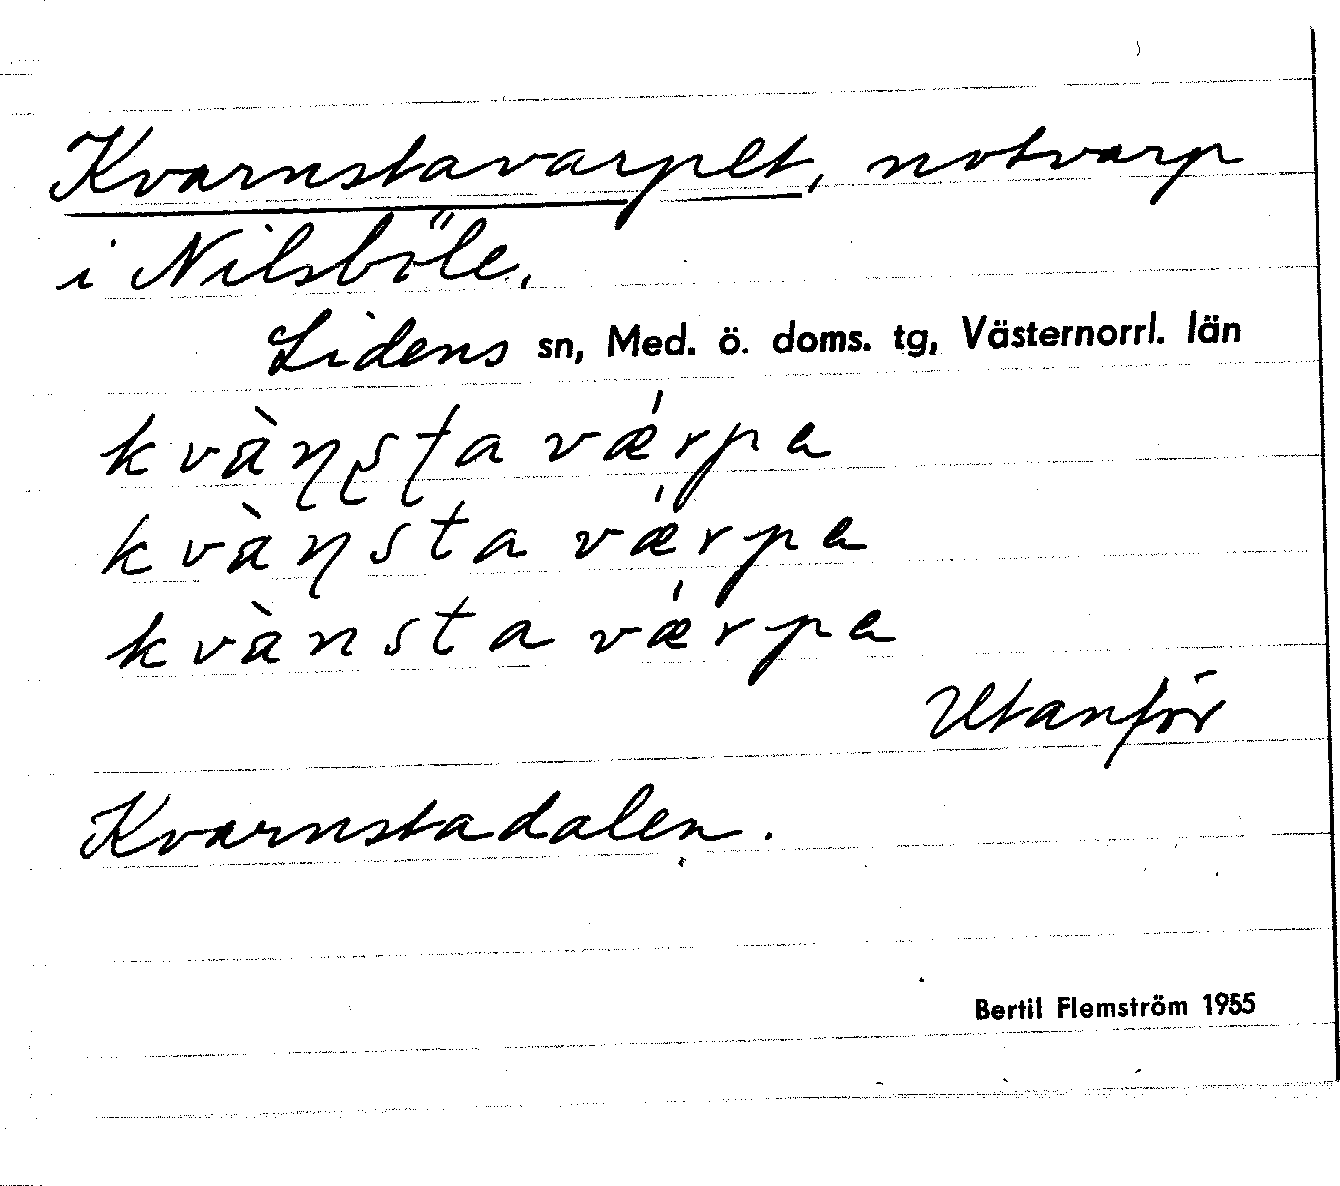 Kvarnstavarpet, notvarp
i Nilsböle.
Lidens sn, Med. ö. doms. tg, Västernorrl. län
kvàɳʂʈa vǽrpa
kvàɳsta vǽrpa
kvànsta vǽrpa
Utanför
Kvarnstadalen.
Bertil Flemström 1955